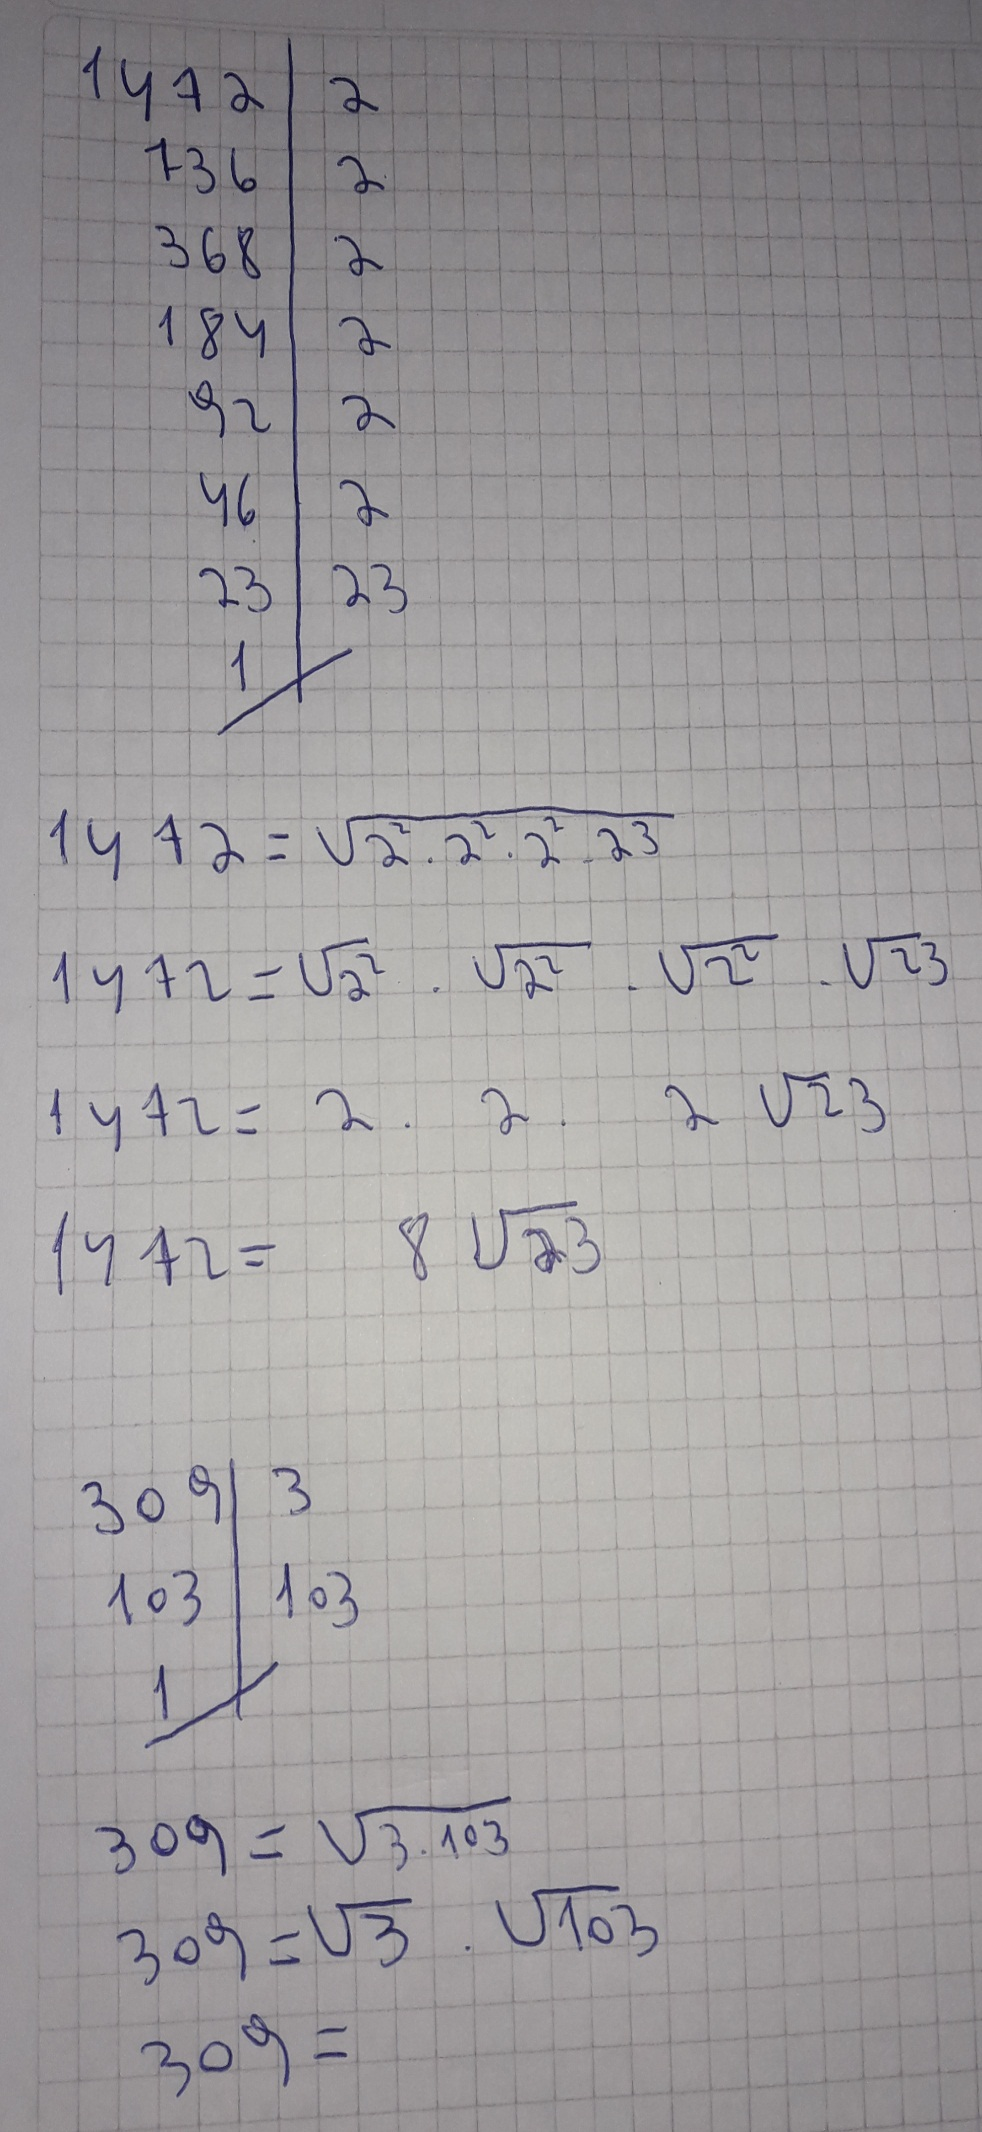 1472 | 2
736 | 2
368 | 2
184 | 2
92 | 2
46 | 2
23 | 23
1
1472 = √2².2².2².23
1472 = √2² . √2² . √2² . √23
1472 = 2 . 2 . 2 √23
1472 = 8 √23
309 | 3
103 | 103
1
309 = √3.103
309 = √3 . √103
309 =